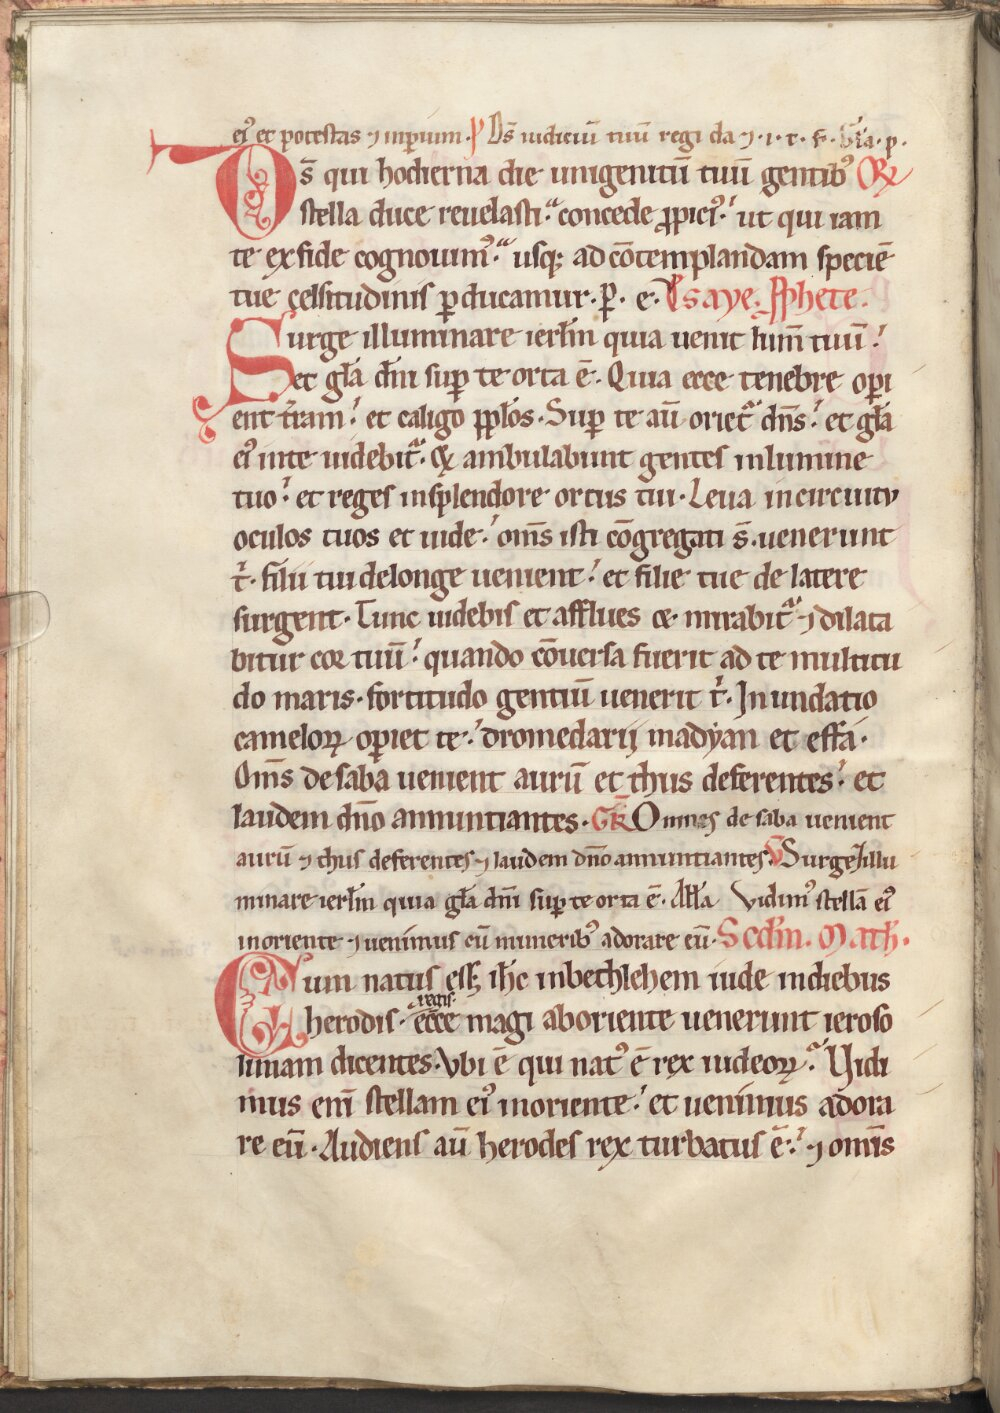 eiꝰ et potestas ⁊ inperium. ps Ds̄ iudiciū tuū regi da ⁊ .i. t. f. Gl'a. p.
Ds̄ qui hodierna die unigenitū tuū gentibꝰ OR
stella duce reuelasti. concede ꝓpiciꝰ. ut qui iam
te ex fide cognouimꝰ. usq; ad cōtemplandam speciē
tue celsitudinis ꝑducamur. ꝑ. e. Ysaye. ꝓphete.
Surge illuminare ierl̄m quia uenit lum̄ tuū.
et gl̄a dn̄i suꝑ te orta ē. Quia ecce tenebre oꝑi
ent t̄ram. et caligo ppl̄os. Suꝑ te aū oriet᷑ dn̄s. et gl̄a
eiꝰ in te uidebit᷑. Et ambulabunt gentes in lumine
tuo. et reges in splendore ortus tui. Leua in circuitu
oculos tuos et uide. om̄s isti cōgregati s̄. uenerunt
t̄. filii tui de longe uenient. et filie tue de latere
surgent. Tunc uidebis et afflues et mirabit᷑ ⁊ dilata
bitur cor tuū. quando cōuersa fuerit ad te multitu
do maris. fortitudo gentiū uenerit t̄. Inundatio
cameloꝝ oꝑiet te. dromedarij madyan et effa.
Om̄s de saba uenient aurū et thus deferentes. et
laudem dn̄o annuntiantes. GR Omnes de saba uenient
aurū ⁊ thus deferentes ⁊ laudem dn̄o annuntiantes. V Surge ⁊ illu
minare ierl̄m quia gl̄a dn̄i suꝑ te orta ē. All'a Vidimꝰ stellā eiꝰ
in oriente ⁊ uenimus cū muneribꝰ adorare eū. Scd̄m. Math̄.
Cum natus esset ih̄c in bethlehem iude in diebus
herodis regis. ecce magi ab oriente uenerunt ieroso
limam dicentes. Vbi ē qui natꝰ ē rex iudeoꝝ. Vidi
mus eni̅ stellam eiꝰ in oriente. et uenimus adora
re eū. Audiens aū herodes rex turbatus ē. ⁊ omīs